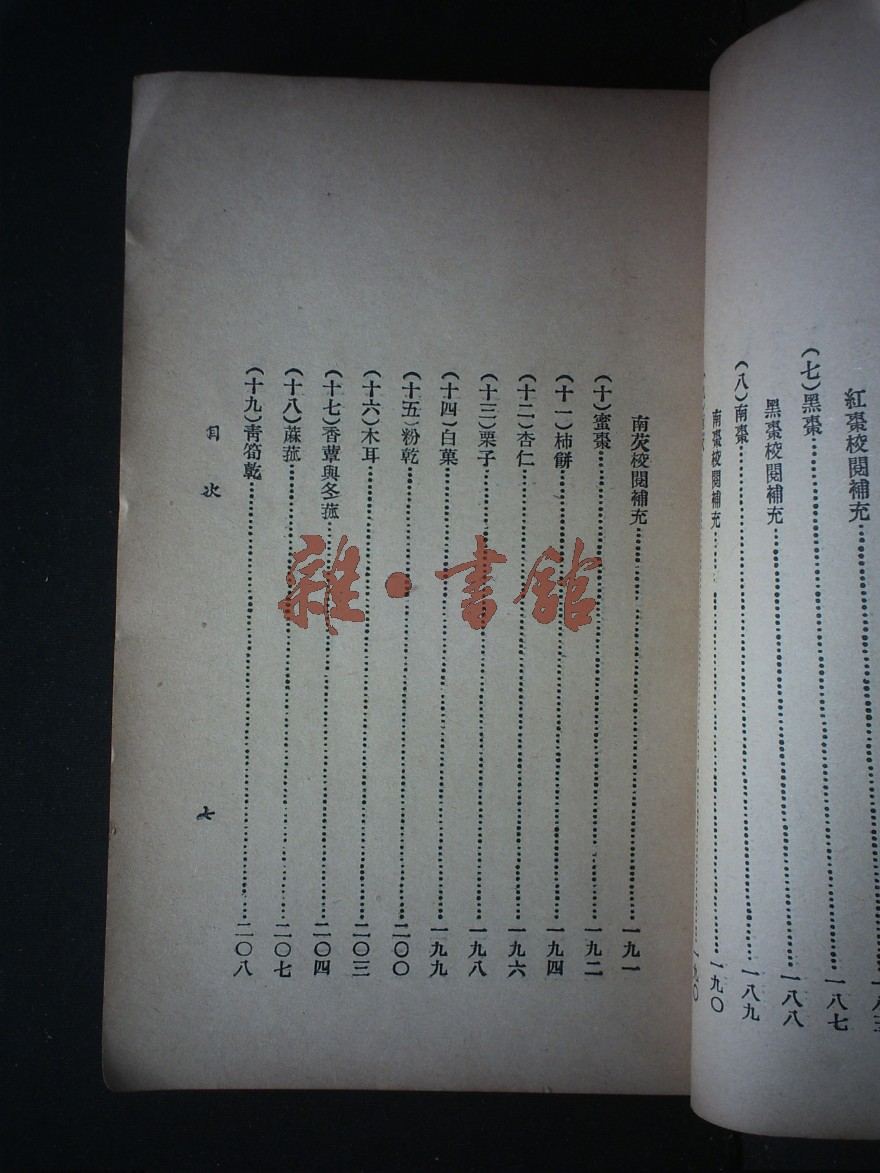 紅棗校閱補充
(七)黑棗……一八七
黑棗校閱補充……一八八
(八)南棗……一八九
南棗校閱補充……一九〇
一九〇
南芡校閱補充……一九一
(十)蜜棗……一九二
(十一)柿餅……一九四
(十二)杏仁……一九六
(十三)栗子……一九八
(十四)白菓……一九九
(十五)粉乾……二〇〇
(十六)木耳……二〇三
(十七)香蕈與冬菰……二〇四
(十八)蔴菰……二〇七
(十九)青筍乾……二〇八
目次
七
雜·書館